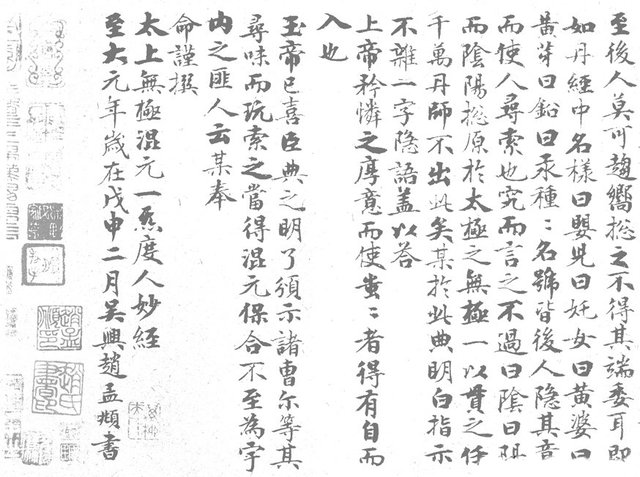 至後人莫可趨嚮揔之不得其端委耳即
如丹經中名樣曰嬰兒曰姹女曰黃婆曰
黃芽曰鉛曰汞種〻名號皆後人隐其音
而使人尋索也究而言之不過曰陰曰陽
而陰陽揔原於太極之無極一以貫之任
千萬丹師不出此矣某於此典明白指示
不雜一字隐語盖以荅
上帝矜憐之厚意而使蚩〻者得有自而
入也
玉帝已喜臣典之明了頒示諸曹尔等其
尋味而玩索之當得混元保合不至為宇
内之匪人云某奉
命謹撰
太上無極混元一炁度人妙經
至大元年歲在戊申二月吳興趙孟頫書